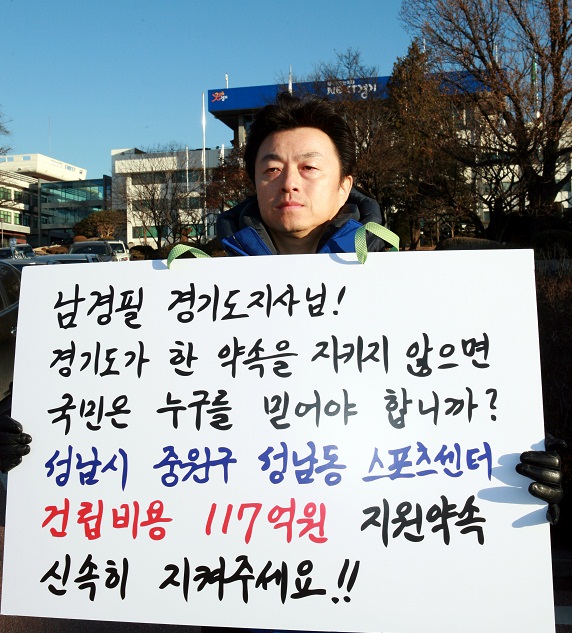 NEXT경기
남경필 경기도지사님!
경기도가 한 약속을 지키지 않으면
국민은 누구를 믿어야 합니까?
성남시 중원구 성남동 스포츠센터
건립비용 117억원 지원약속
신속히 지켜주세요!!